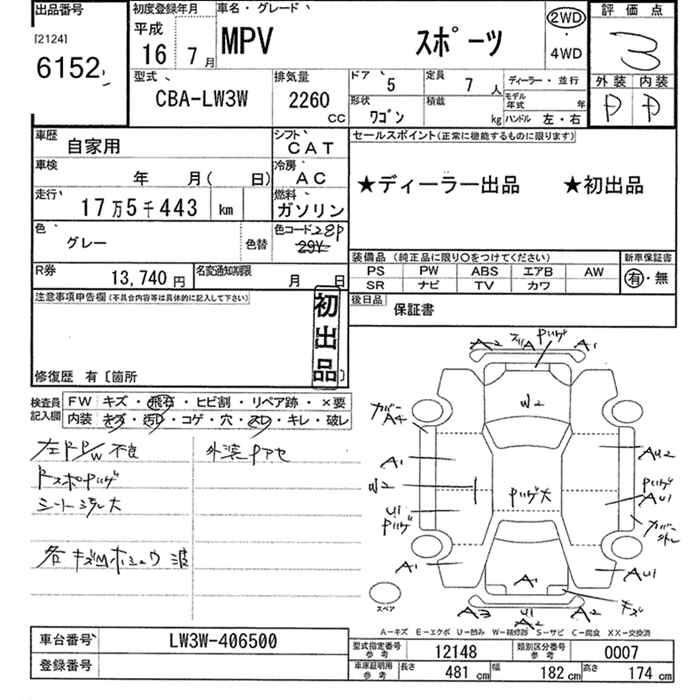 出品番号
[2124]
6152
初度登録年月
平成
16 年 7 月
車名・グレード
MPV スポーツ
2WD
・
4WD
評価点
3
外装 内装
P P
型式
CBA-LW3W
排気量
2260 CC
ドア 5
定員 7 人
形状 ワゴン
積載 kg
ディーラー・並行
モデル年式 年
ハンドル 左・右
車歴 自家用
シフト CAT
車検 年 月( 日)
冷房 AC
走行 17万5千443 km
燃料 ガソリン
色 グレー
色替
色コード 28P
29Y
R券 13,740 円
名変通知期限 月 日
セールスポイント(正常に機能するものに限ります)
★ディーラー出品 ★初出品
装備品 (純正品に限り○をつけてください)
PS PW ABS エアB AW
SR ナビ TV カワ
新車保証書
有・無
後日品 保証書
注意事項申告欄(不具合内容等は具体的に記入して下さい)
初出品
修復歴 有〔箇所 〕
検査員記入欄
FW キズ・飛石・ヒビ割・リペア跡・×要
内装 キズ・汚レ・コゲ・穴・スレ・キレ・破レ
左ドアP/W不良
外装中アセ
シート汚レ大
A2 A A1
W2
カバー
A4
A1
W2
U1
A1
AU2
AU1
カバー
AU1
A1
キズ
A3 U1 A2
W2
スペア
A-キズ E-エクボ U-凹み W-補修跡 S-サビ C-腐食 XX-交換済
車台番号 LW3W-406500
登録番号
型式指定番号 参考 12148
類別区分番号 参考 0007
車庫証明用 参考 長さ 481 cm 幅 182 cm 高さ 174 cm